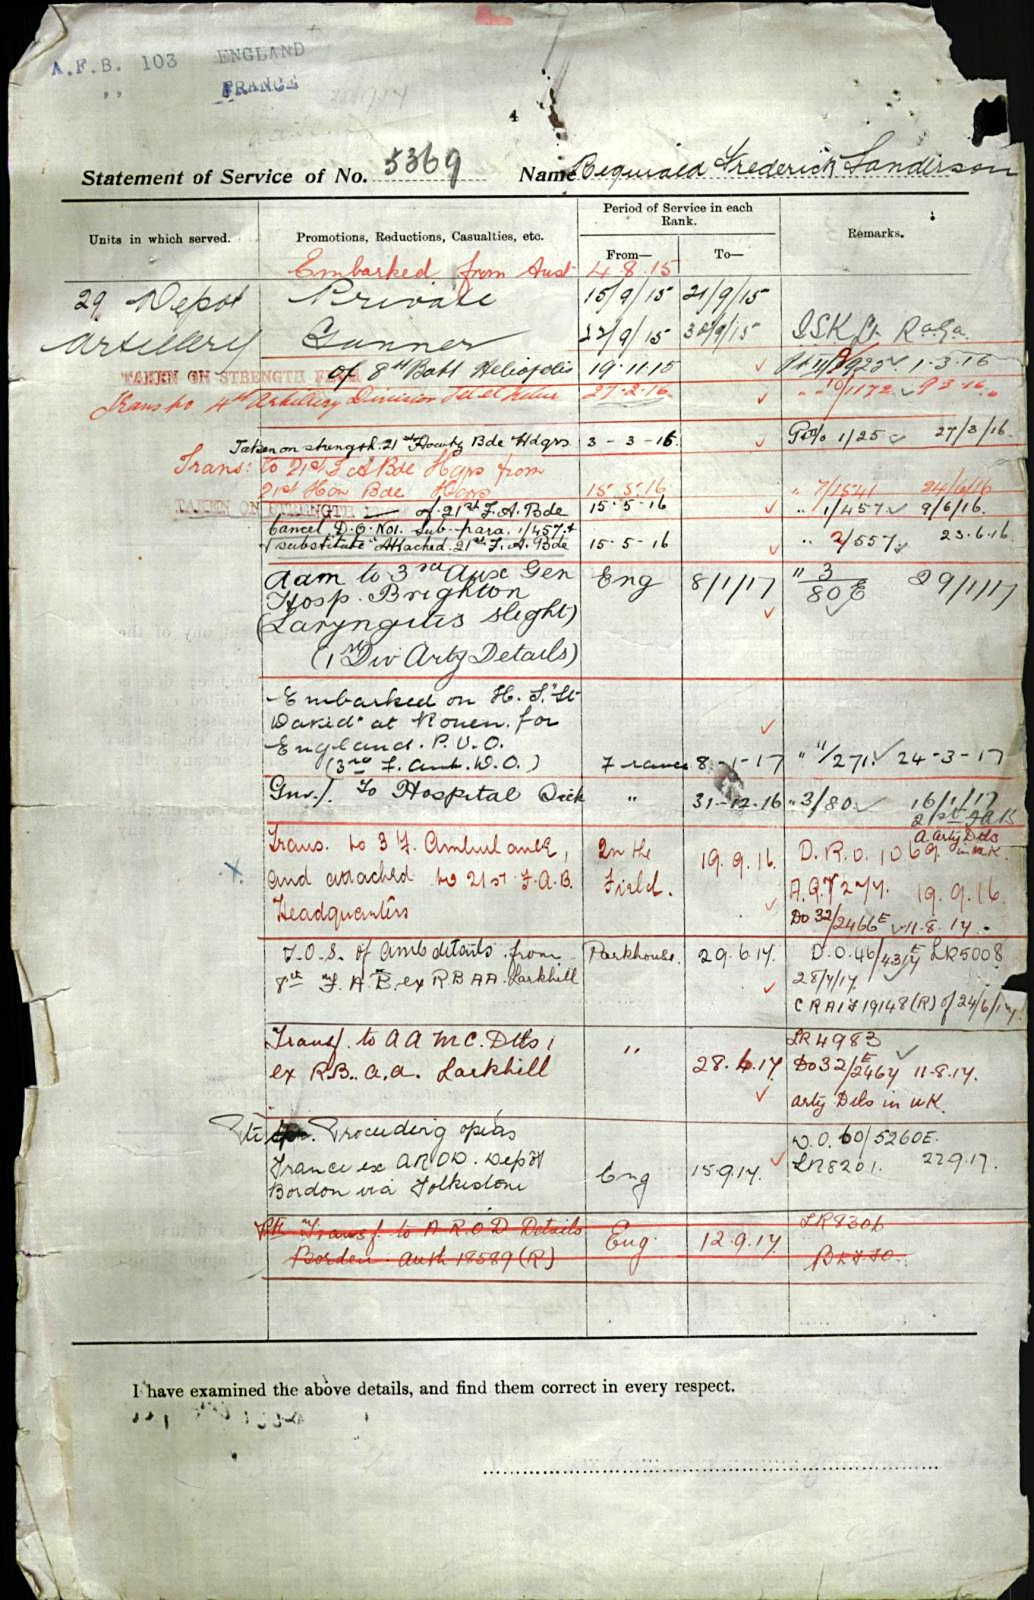 A.F.B. 103 ENGLAND
" FRANCE
4
Statement of Service of No. 5369 Name Reginald Frederick Sanderson
Units in which served. Promotions, Reductions, Casualties, etc. Period of Service in each Rank. Remarks.
From— To—
Embarked from Aust 4.8.15
29 Depot Private 15/9/15 21/9/15
Artillery Gunner 22/9/15 30/9/15
TAKEN ON STRENGTH FROM of 8th Batt Heliopolis 19.11.15 1.3.16
Trans to 4th Artillery Division Tel el Kebir 27.2.16 10/1172 9 3 16
Taken on strength 21st Howtz Bde Hdqrs 3-3-16 1/25 27/3/16
Trans: to 21st F A Bde Hqrs from
21st How Bde Hqrs 15.5.16 " 7/1541 24/6/16
TAKEN ON STRENGTH of 21st F.A. Bde 15.5.16 " 1/457 9/6/16.
Cancel D.O. No1. Sub-para. 1/457 &
substitute "Attached 21st F.A. Bde 15-5-16 " 2/557 23.6.16
Adm to 3rd Aux Gen Eng 8/1/17 " 3/80 E 29/1/17
Hosp. Brighton
(Laryngitis slight)
(1st Div Arty Details)
Embarked on H.S. "St
David" at Rouen for
England. P.U.O.
(3rd F. Amb. W.O.) France 8-1-17 " 11/271 24-3-17
Gnr. To Hospital Sick " 31-12-16 " 3/80 16/1/17
21st FAB
A. Arty Dtls
in UK.
Trans. to 3 F. Ambulance, In the 19.9.16 D.R.O. 1069
and attached to 21st F.A.B. Field. 19.9.16
Headquarters Do 32/2466E 11.8.17.
T.O.S. of Amb details from Parkhouse. 29.6.17. D.O. 46/4317E LR5008
8th F.A.B. ex RBAA Larkhill 28/7/17
CRAIF 19148(R) of 24/6/17
Transf. to A A M C. Dtls, " 28.6.17 LR4983
ex R.B.A.A. Larkhill Do32/2467E 11.8.17.
Arty Dtls in UK.
Pte Proceeding o/seas D.O. 60/5260E.
France ex AROD. Depot Eng 15.9.17. LR8201. 22.9.17.
Bordon via Folkestone
Pte Transf. to A.R.O.D Details Eng. 12.9.17 LR8306
Borden Auth 18589(R)
I have examined the above details, and find them correct in every respect.